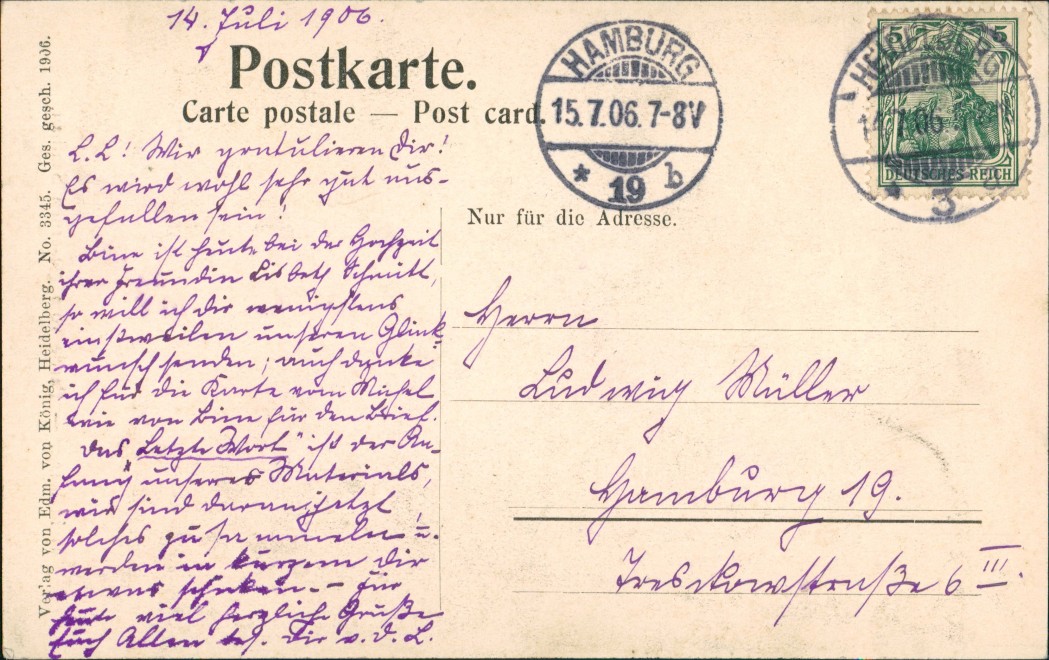 14. Juli 1906.
Postkarte.
Carte postale — Post card.
L. L.! Wir gratulieren Dir!
Es wird wohl sehr gut aus-
gefallen sein!
Bine ist heute bei der Hochzeit
ihrer Freundin Lisbeth Schmitt,
so will ich dir wenigstens
einstweilen unseren Glück-
wunsch senden; auch danke
ich für die Karte vom Michel
wie von Bine für den Brief.
Das „Letzte Wort" ist der An-
fang unseres Materials,
wir sind daran jetzt
solches zu sammeln u.
werden in kurzem dir
etwas schicken. – Für
heute viel herzliche Grüße
Euch Allen bes. Dir v. d. L.
Verlag von Edm. von König, Heidelberg. No. 3345. Ges. gesch. 1906.
HAMBURG
15.7.06.7-8V
* 19 b
5 5
DEUTSCHES REICH
HEIDELBERG
14.7.06
3
Nur für die Adresse.
Herrn
Ludwig Müller
Hamburg 19.
Tresckowstraße 6 III.